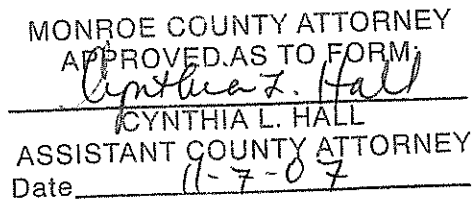 MONROE COUNTY ATTORNEY
APPROVED AS TO FORM:
Cynthia L. Hall
CYNTHIA L. HALL
ASSISTANT COUNTY ATTORNEY
Date 11-7-07